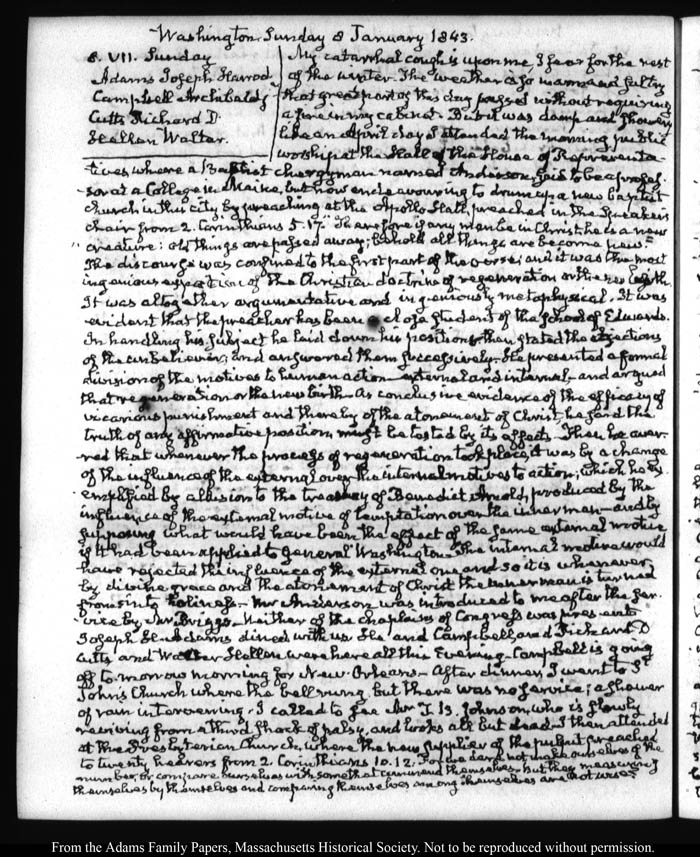 Washington, Sunday 8 January 1843.
8. VII. Sunday
Adams Joseph Harrod
Campbell Archibald
Cutts Richard D.
Hellen Walter.
My catarrhal cough is upon me I fear for the rest
of the winter. The weather is so warm and sultry
that great part of this day passed without requiring
a fire in my cabinet. But it was damp and showery
like an April day. I attended the morning public
worship at the Hall of the House of Representa-
tives, where a Baptist clergyman named Anderson, said to be a profes-
sor at a College in Maine, but now endeavouring to drum up a new baptist
church in this city by preaching at the Apollo Hall, preached in the Speaker's
chair from 2. Corinthians 5.17. "Therefore if any man be in Christ, he is a new
"creature: old things are passed away; behold all things are become new"
The discourse was confined to the first part of the verse; and it was the most
ingenious exposition of the Christian doctrine of regeneration or the new birth.
It was altogether argumentative and ingeniously metaphysical. It was
evident that the preacher has been a close student of the school of Edwards.
In handling his subject he laid down his positions, then stated the objections
of the unbeliever, and answered them successively. He presented a formal
division of the motives to human action external and internal, and argued
that regeneration or the new birth. As conclusive evidence of the efficacy of
vicarious punishment and thereby of the atonement of Christ, he said the
truth of any affirmative position, must be tested by its effects. Then he aver-
red that whenever the process of regeneration took place, it was by a change
of the influence of the external over the internal motives to action; which he ex-
emplified by allusion to the treachery of Benedict Arnold, produced by the
influence of the external motive of temptation over the inner man—and by
supposing what would have been the effect of the same external motive
if it had been applied to General Washington. The internal motive would
have rejected the influence of the external one, and so it is whenever,
by divine grace and the atonement of Christ the inner man is turned
from sin to holiness— Mr Anderson was introduced to me after the ser-
vice by Mr Briggs. Neither of the chaplains of Congress was present
Joseph H. Adams dined with us. He and Campbell, and Richard D
Cutts and Walter Hellen were here all this Evening. Campbell is going
off to-morrow morning for New-Orleans— After dinner, I went to St.
John's Church where the bell rung, but there was no service; a shower
of rain intervening. I called to see Mr J. B. Johnson, who is slowly
reviving from a third shock of palsy, and looks all but dead. I then attended
at the Presbyterian Church, where the new supplier of the pulpit preached
to twenty hearers from 2. Corinthians 10.12. For we dare not make ourselves of the
number, or compare ourselves with some that commend themselves. but they measuring
themselves by themselves and comparing themselves among themselves are not wise
From the Adams Family Papers, Massachusetts Historical Society. Not to be reproduced without permission.